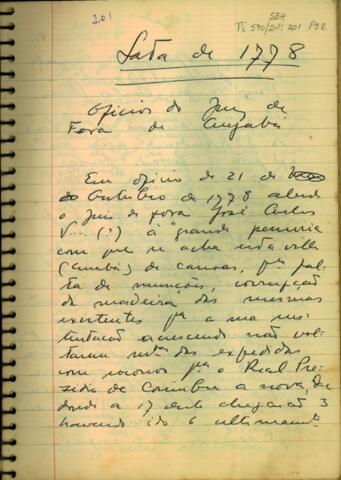 201
SBH
Pi 540/24: 201 P32
Lata de 1778
Oficios do Juiz de
Fora de Cuyabá
Em oficio de 21 de
Outubro de 1778 alude
o Juiz de fora José Carlos
V... (?) à "grande penuria
com que se acha esta villa
(Cuiabá) de canoas, pr fal-
ta de munições, corrupção
da madeira das mesmas
existentes pa a sua
acrescendo não vol-
taram das expedidas
com socorros pa o Real Pre-
sidio de Coimbra a nova, de
donde a 17 deste chegarão 3
havendo ido 6 ultimamte